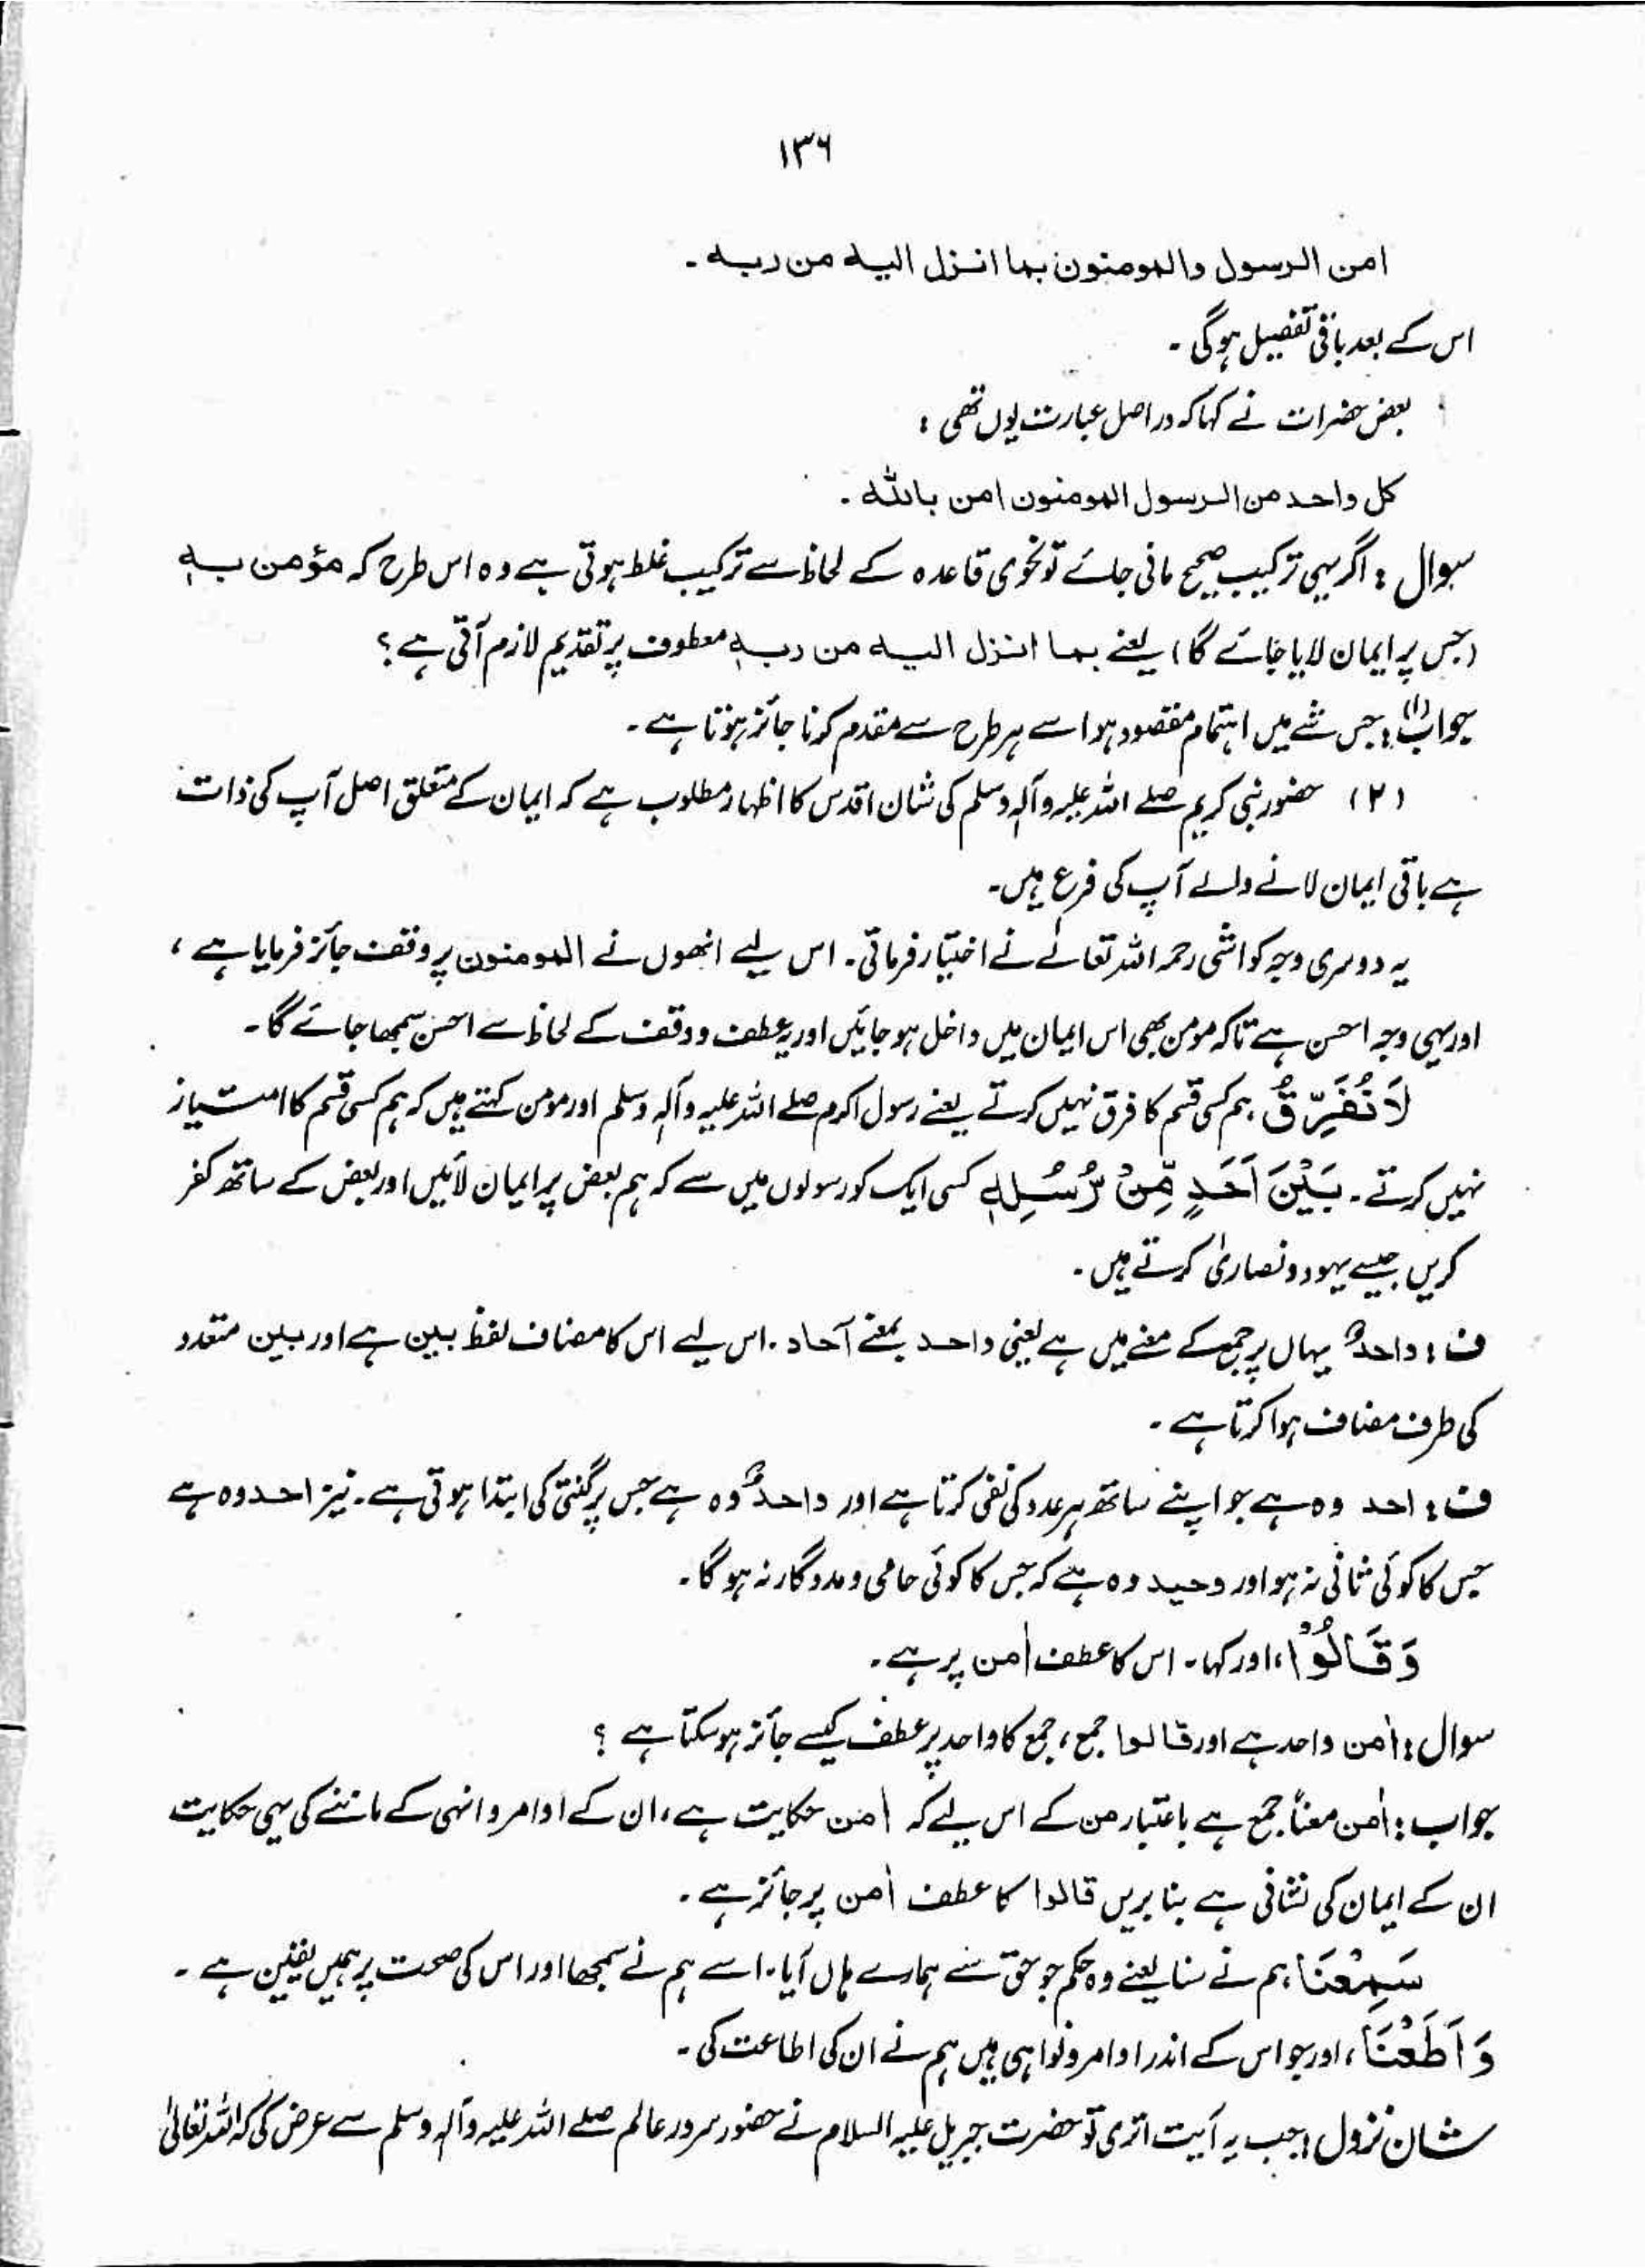 ۱۳۶
امن الرسول والمومنون بما انزل الیه من ربه ۔
اس کے بعد باقی تفصیل ہوگی ۔
بعض حضرات نے کہا کہ در اصل عبارت یوں تھی :
کل واحد من الرسول المومنون امن بالله ۔
سوال : اگر یہی ترکیب صحیح مانی جائے تو نحوی قاعدہ کے لحاظ سے ترکیب غلط ہوتی ہے وہ اس طرح کہ مؤمن بہٖ
(جس پر ایمان لایا جائے گا) یعنے بما انزل الیه من ربہٖ معطوف پر تقدیم لازم آتی ہے ؟
جواب (۱) : جس شے میں اہتمام مقصود ہو اسے ہر طرح سے مقدم کرنا جائز ہوتا ہے ۔
(۲) حضور نبی کریم صلے اللہ علیہ وآلہٖ وسلم کی شان اقدس کا اظہار مطلوب ہے کہ ایمان کے متعلق اصل آپ کی ذات
ہے باقی ایمان لانے والے آپ کی فرع ہیں۔
یہ دوسری وجہ کواشی رحمہ اللہ تعالٰے نے اختیار فرمائی ۔ اس لیے انھوں نے المومنون پر وقف جائز فرمایا ہے ،
اور یہی وجہ احسن ہے تاکہ مومن بھی اس ایمان میں داخل ہو جائیں اور یہ عطف و وقف کے لحاظ سے احسن سمجھا جائے گا ۔
لَا نُفَرِّقُ ہم کسی قسم کا فرق نہیں کرتے یعنے رسول اکرم صلے اللہ علیہ وآلہٖ وسلم اور مومن کہتے ہیں کہ ہم کسی قسم کا امتیاز
نہیں کرتے ۔ بَیْنَ اَحَدٍ مِّنْ رُّسُلِہٖ کسی ایک کو رسولوں میں سے کہ ہم بعض پر ایمان لائیں اور بعض کے ساتھ کفر
کریں جیسے یہود و نصاریٰ کرتے ہیں ۔
ف : واحدٌ یہاں پر جمع کے معنے میں ہے یعنی واحد بمعنے آحاد ۔ اس لیے اس کا مضاف لفظ بین ہے اور بین متعدد
کی طرف مضاف ہوا کرتا ہے ۔
ف : احد وہ ہے جو اپنے ساتھ ہر عدد کی نفی کرتا ہے اور واحدٌ وہ ہے جس پر گنتی کی ابتدا ہوتی ہے ۔ نیز احد وہ ہے
جس کا کوئی ثانی نہ ہو اور وحید وہ ہے کہ جس کا کوئی حامی و مددگار نہ ہو گا ۔
وَقَالُوْا ، اور کہا ۔ اس کا عطف اٰمن پر ہے ۔
سوال : اٰمن واحد ہے اور قالوا جمع ، جمع کا واحد پر عطف کیسے جائز ہو سکتا ہے ؟
جواب : اٰمن معنًا جمع ہے باعتبار من کے اس لیے کہ اٰمن حکایت ہے ، ان کے اوامر و انہی کے ماننے کی یہی حکایت
ان کے ایمان کی نشانی ہے بنا بریں قالوا کا عطف اٰمن پر جائز ہے ۔
سَمِعْنَا ، ہم نے سنا یعنے وہ حکم جو حق سے ہمارے ہاں آیا ۔ اسے ہم نے سمجھا اور اس کی صحت پر ہمیں یقین ہے ۔
وَ اَطَعْنَا ، اور جو اس کے اندر اوامر و نواہی ہیں ہم نے ان کی اطاعت کی ۔
شان نزول : جب یہ آیت اتری تو حضرت جبریل علیہ السلام نے حضور سرور عالم صلے اللہ علیہ وآلہٖ وسلم سے عرض کی کہ اللہ تعالیٰ